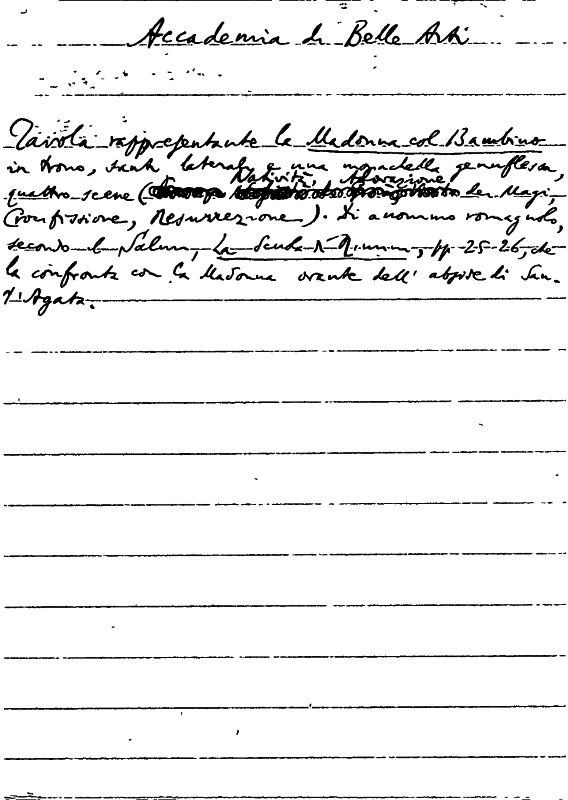 Accademia di Belle Arti
Tavola rappresentante la Madonna col Bambino
in trono, santi laterali e una monachella genuflessa,
Natività, Adorazione
quattro scene ( dei Magi,
Crocifissione, Resurrezione). Di anonimo romagnolo,
secondo il Salmi, La Scuola di Rimini, pp 25-26, che
la confronta con la Madonna orante dell' abside di San-
t'Agata.